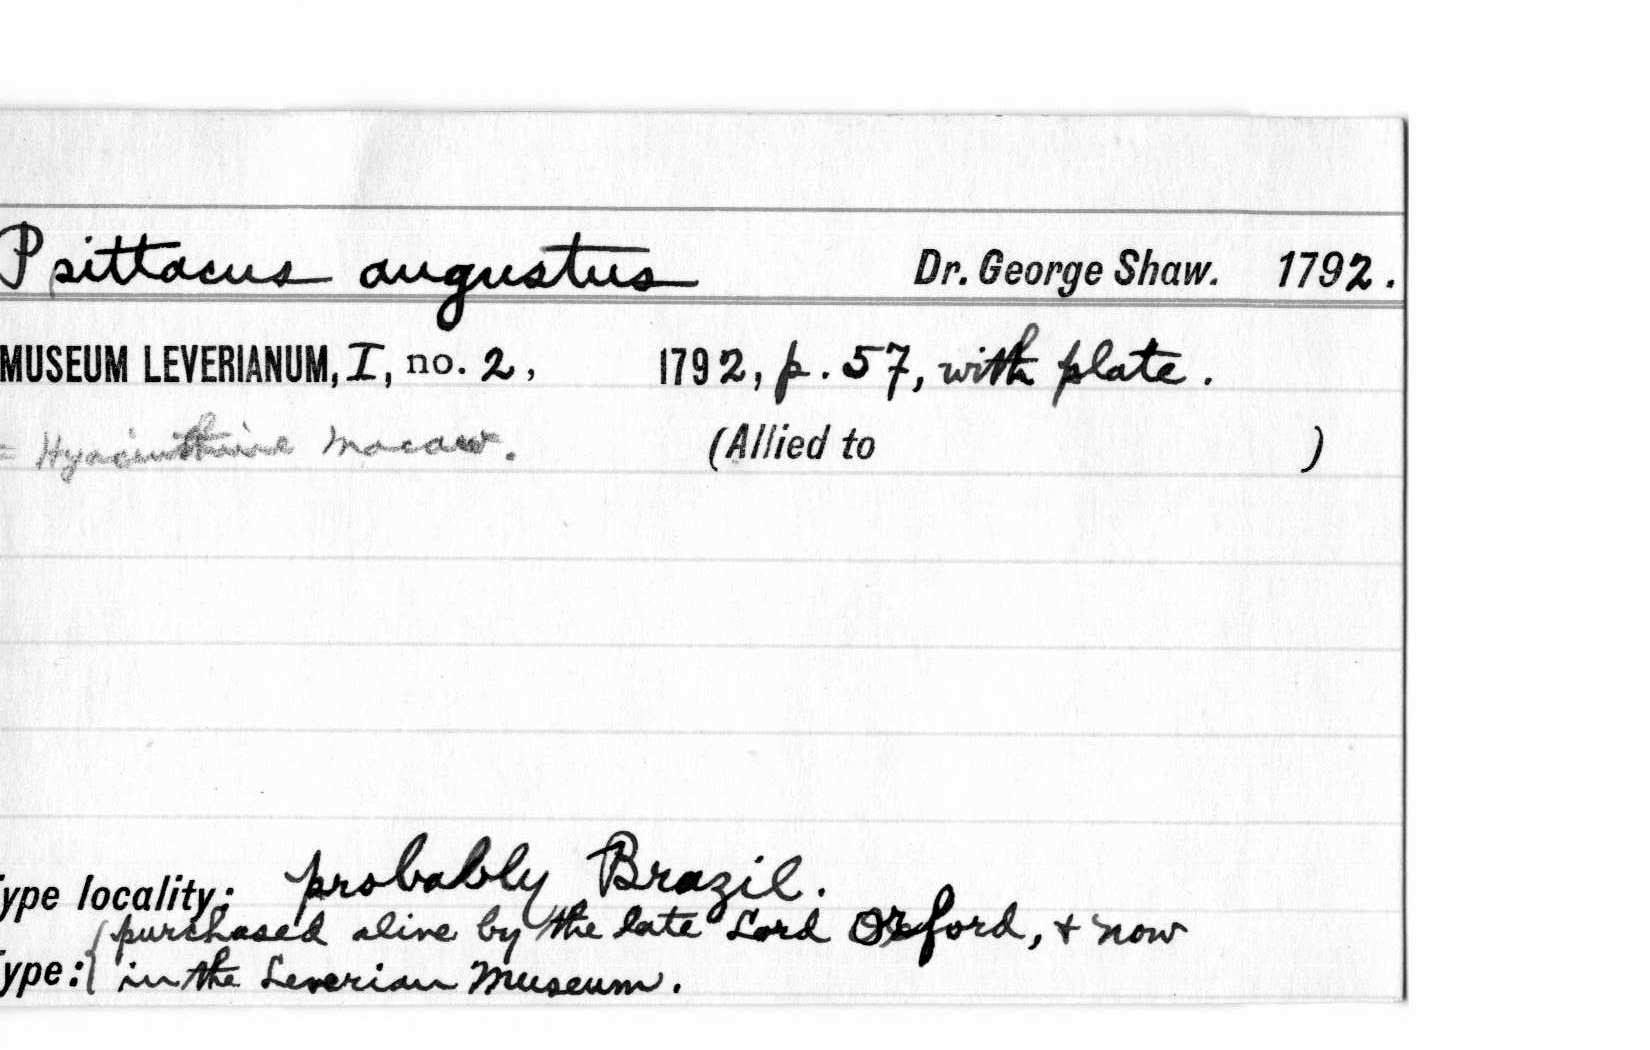 Psittacus augustus Dr. George Shaw. 1792.
MUSEUM LEVERIANUM, I, no. 2, 1792, p. 57, with plate.
= Hyacinthine Macaw. (Allied to )
ype locality: probably Brazil.
purchased alive by the late Lord Orford, + now
ype: in the Leverian Museum.